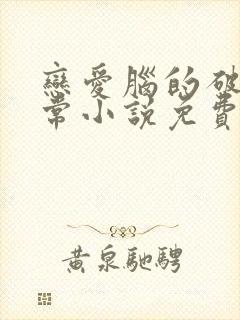 戀愛腦的破
常小說免費
黃泉馳騁